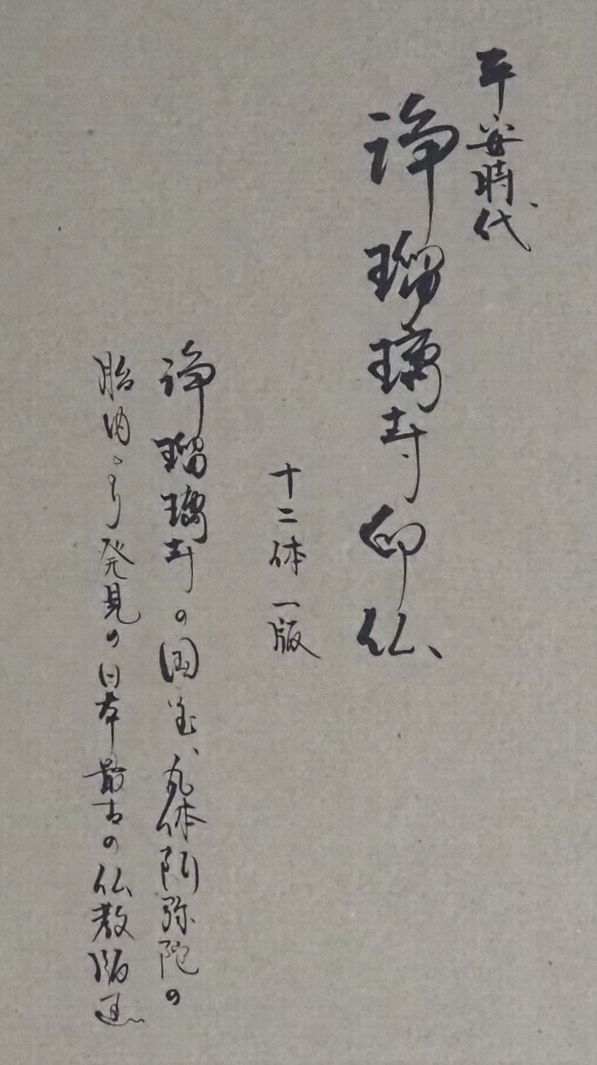 平安時代
浄瑠璃寺印仏
十二体一版
浄瑠璃寺の国宝、九体阿弥陀の
胎内より発見の日本最古の仏教版画